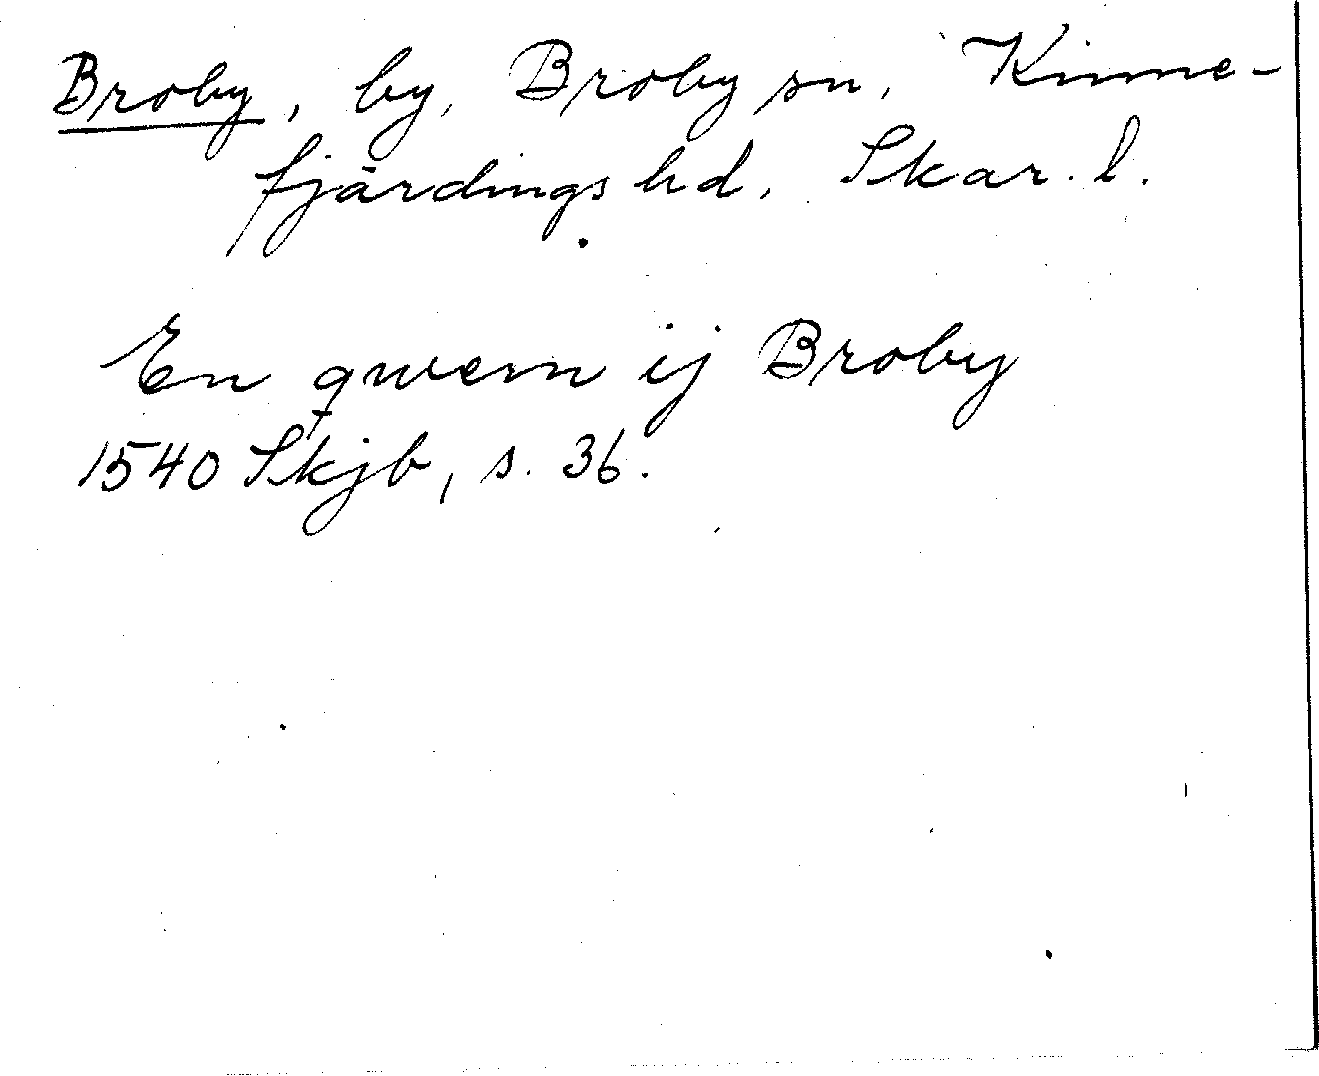 Broby, by, Broby sn, Kinne-
fjärdings hd, Skar. l.
En qwern ij Broby
1540 Skjb, s. 36.